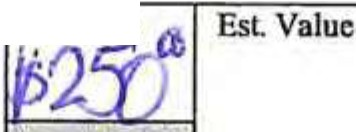 $250⁰⁰
Est. Value